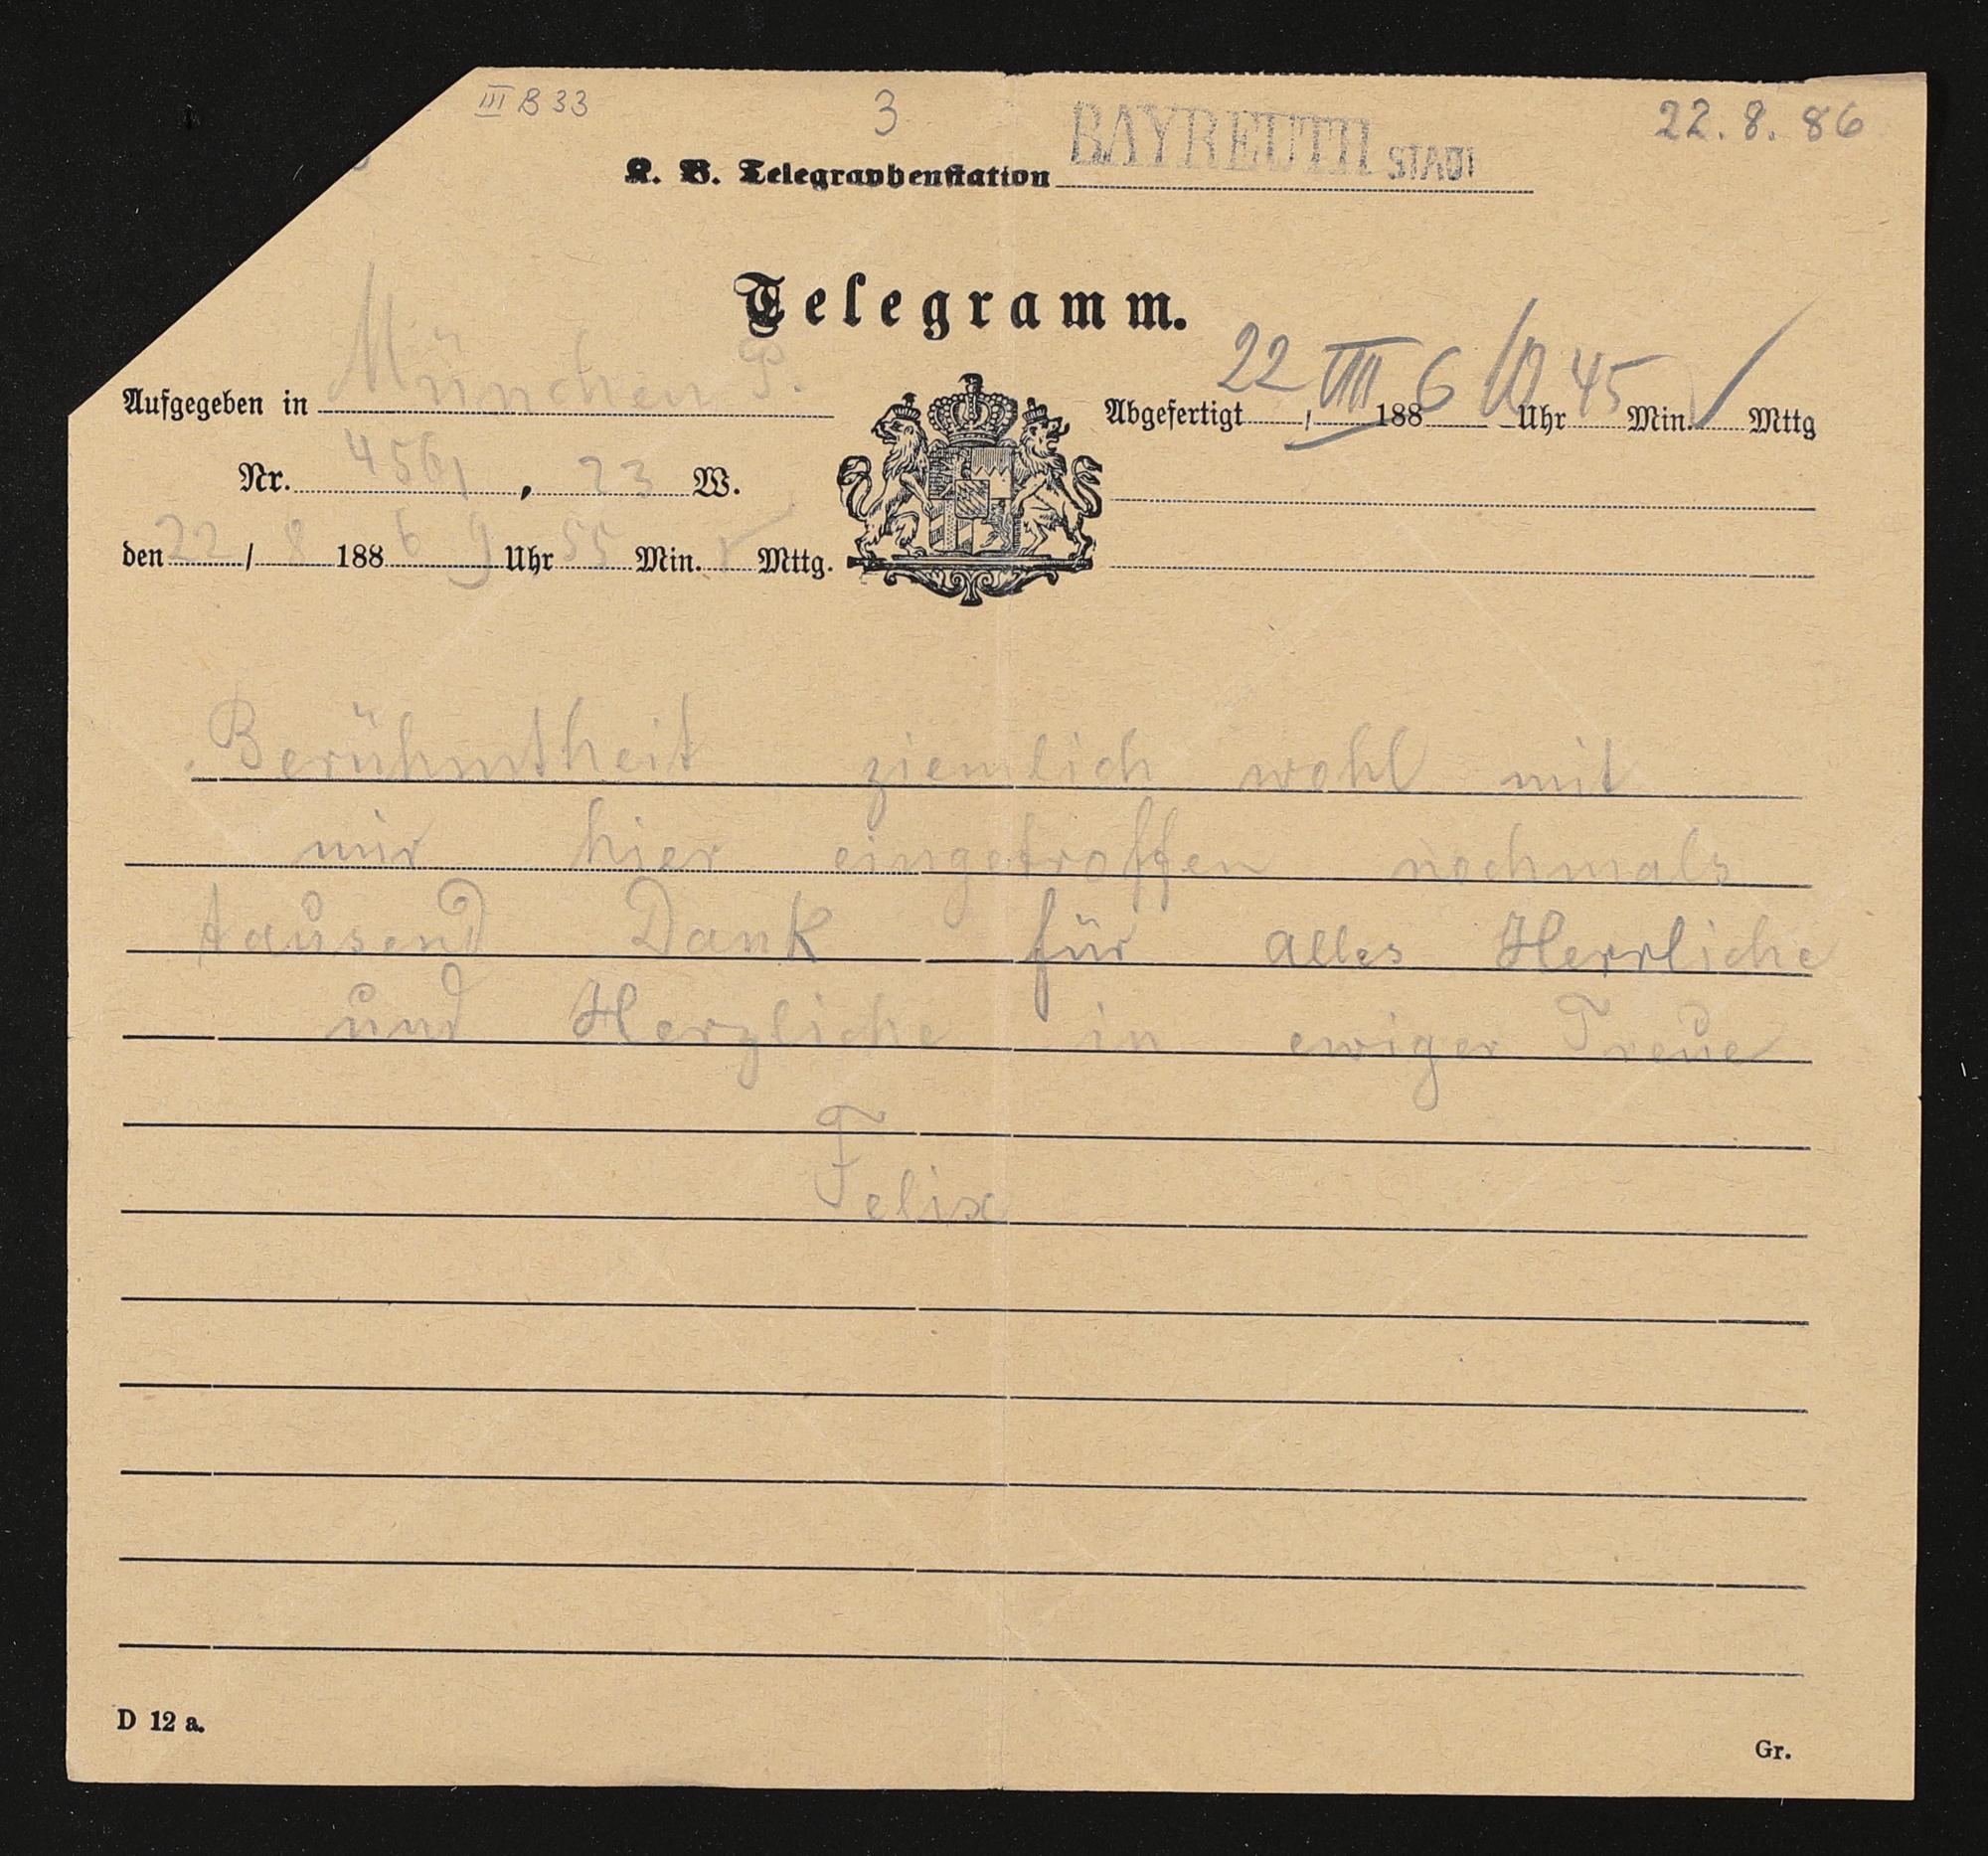 III B 33 3 22. 8. 86
K. B. Telegraphenstation BAYREUTH STADT
Telegramm.
Aufgegeben in München P.
Nr. 4561, 23 W.
den 22 / 8 1886 9 Uhr 55 Min. V Mttg.
Abgefertigt 22 / VIII 1886 10 Uhr 45 Min. V Mttg
Berühmtheit ziemlich wohl mit
mir hier eingetroffen nochmals
tausend Dank für alles Herrliche
und Herzliche in ewiger Treue
Felix
D 12 a.
Gr.